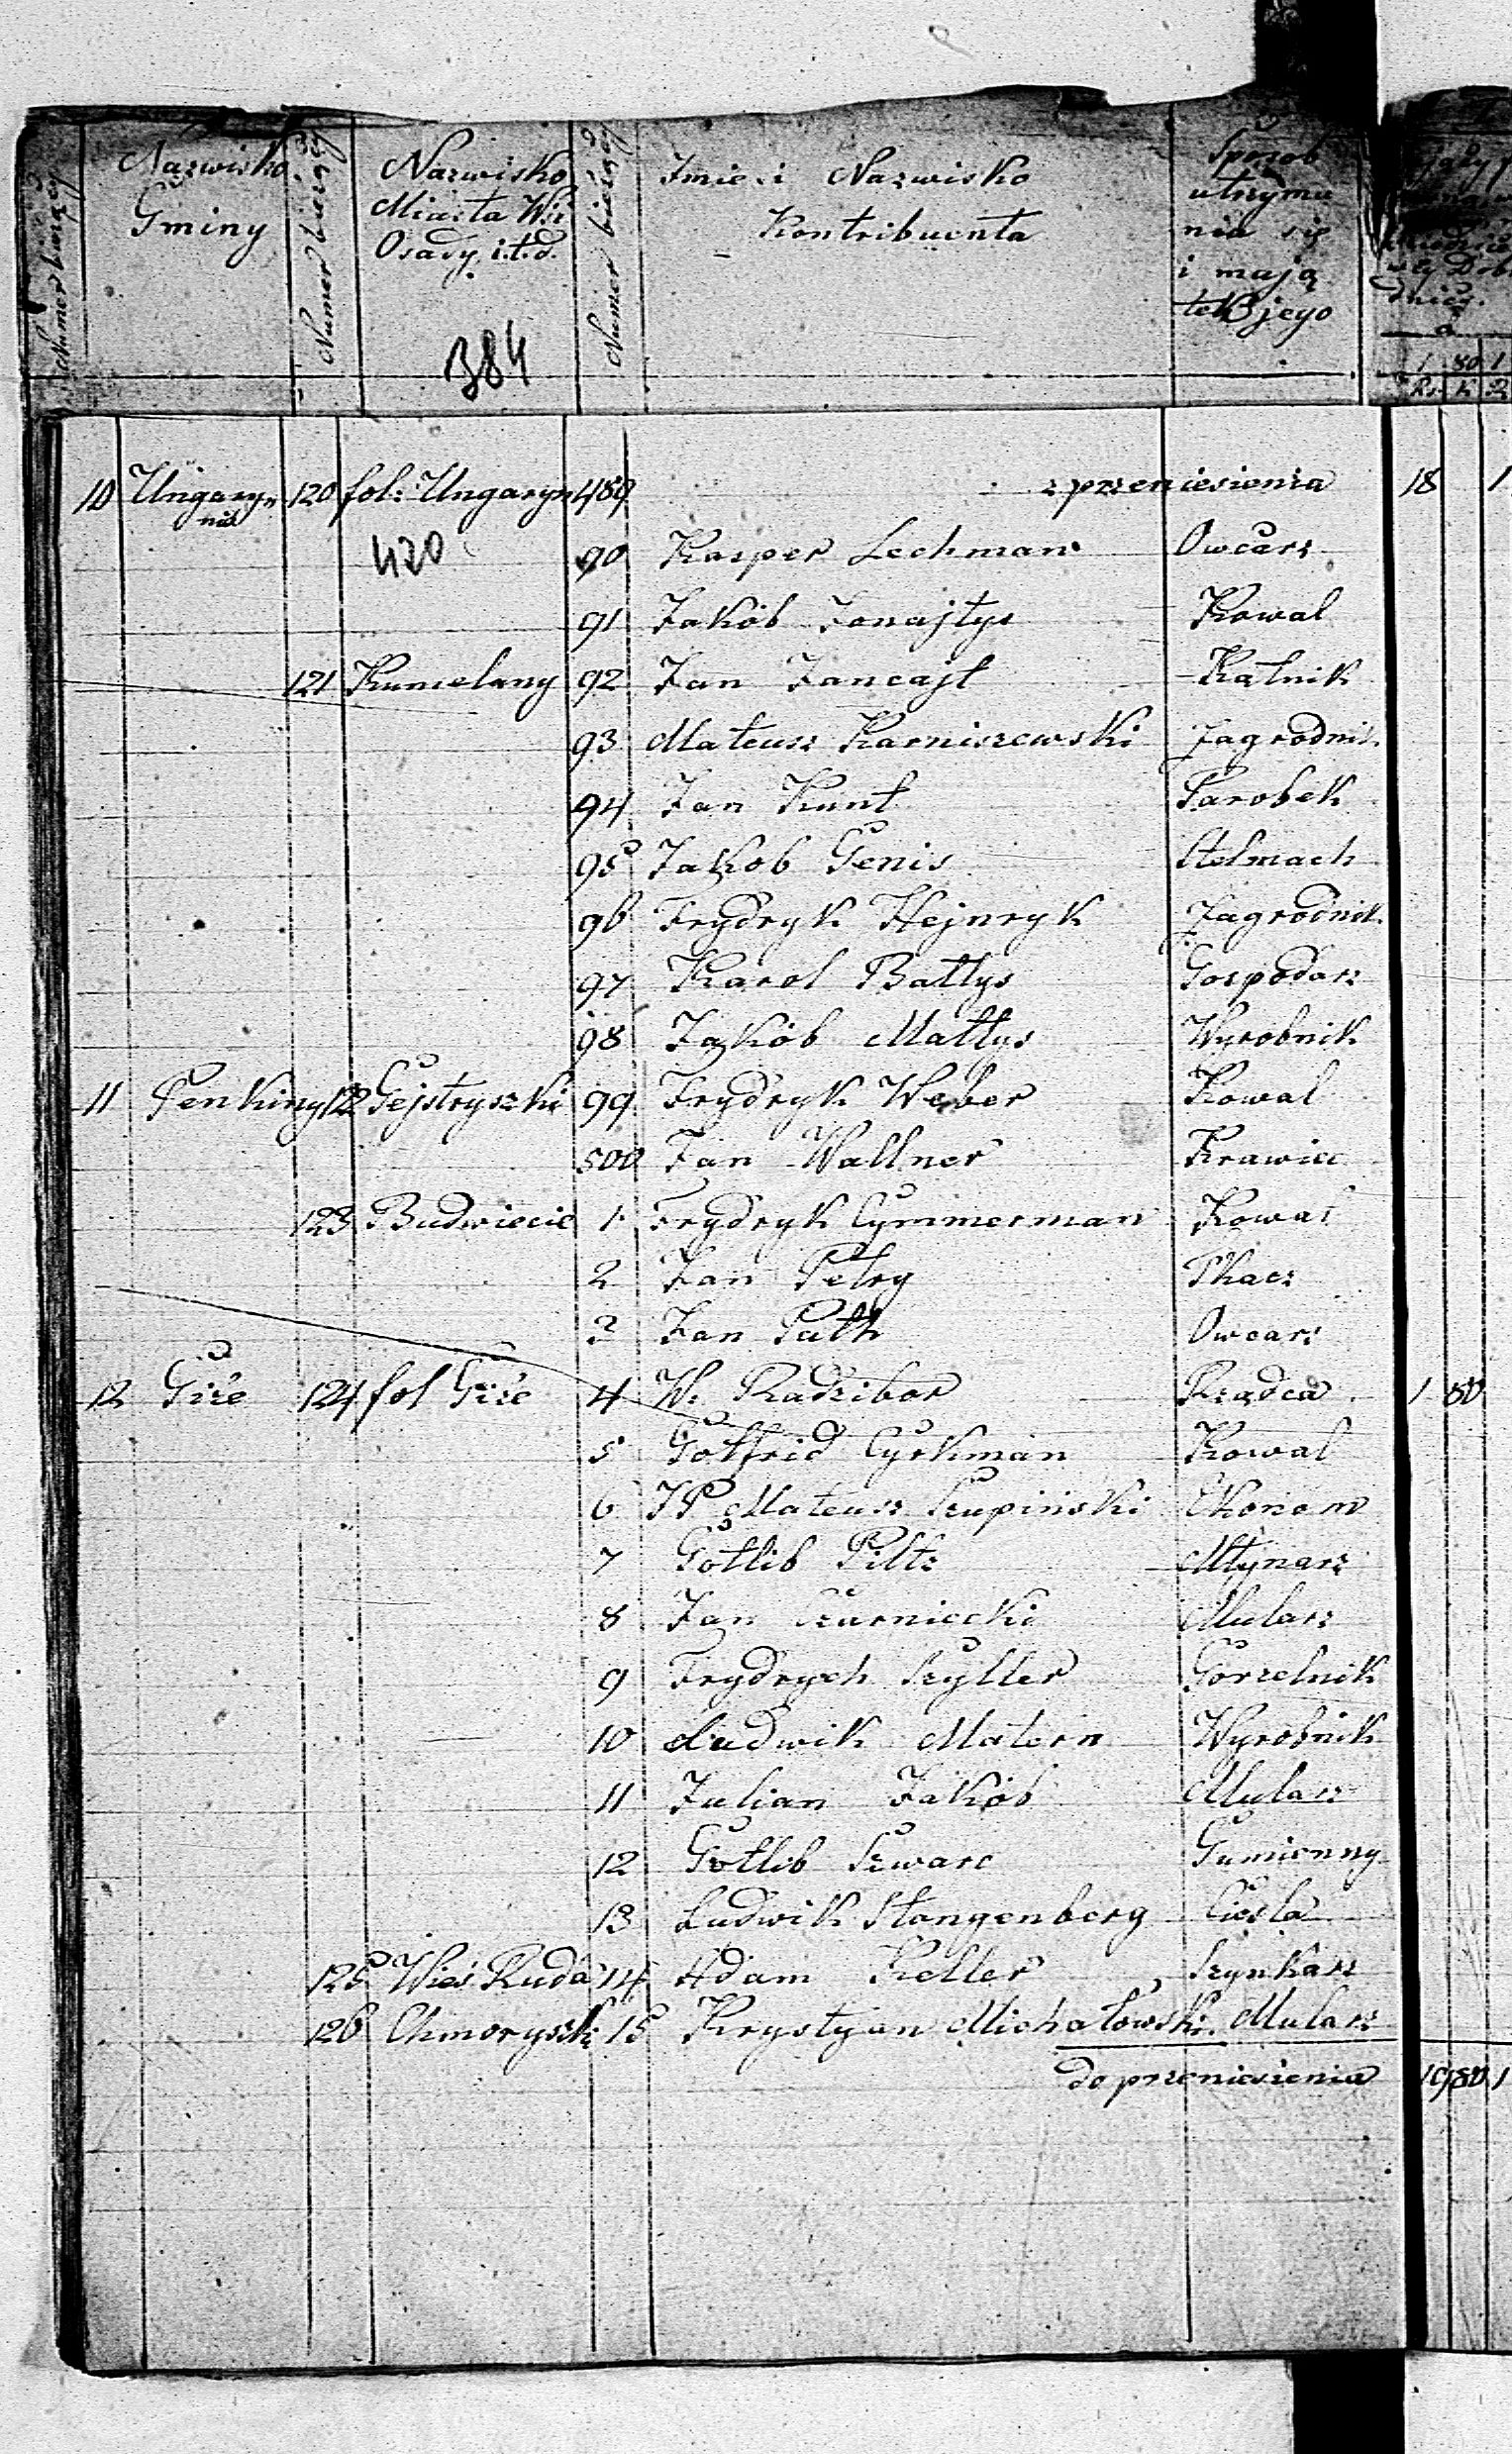 Numer bieżący
Nazwisko Gminy
Numer bieżący
Nazwisko Miasta Wsi Osady i.t.d.
384
Numer bieżący
Imie i Nazwisko Kontribuenta
Sposób utrzymania się i majątek jego
1 80 1
Rs K R
10 Ungaryn 120 fol: Ungaryn 489 z przeniesienia 18 1
420 90 Kasper Lechman Owcarz
91 Jakób Jonajtys Kowal
121 Kumelany 92 Jan Jancajt Kątnik
93 Mateusz Karniszewski Zagrodnik
94 Jan Kunt Parobek
95 Jakob Genis Stelmach
96 Frydryk Hejnryk Zagrodnik
97 Karol Battys Gospodarz
98 Jakób Mattys Wyrobnik
11 Penkiny 122 Gejstryszki 99 Frydryk Weber Kowal
500 Jan Wallner Krawiec
123 Budwiecie 1 Frydryk Cymmerman Kowal
2 Jan Petry Tkacz
3 Jan Path Owcarz
12 Giże 124 fol Giże 4 W: Radzibor Rządca 1 80
5 Gotfrid Cyrkman Kowal
6 JP Mateusz Szupiński Ekonom
7 Gotlib Piltz Młynarz
8 Jan Czarniecki Mularz
9 Frydrych Szyller Gorzelnik
10 Ludwik Matern Wyrobnik
11 Julian Jakób Mularz
12 Gotlib Szwarc Gumienny
13 Ludwik Stangenberg Cieśla
125 Wieś Ruda 14 Adam Keller Szynkarz
126 Chmoryszki 15 Krystyan Michałowski Mularz
do przeniesienia 19 80 1